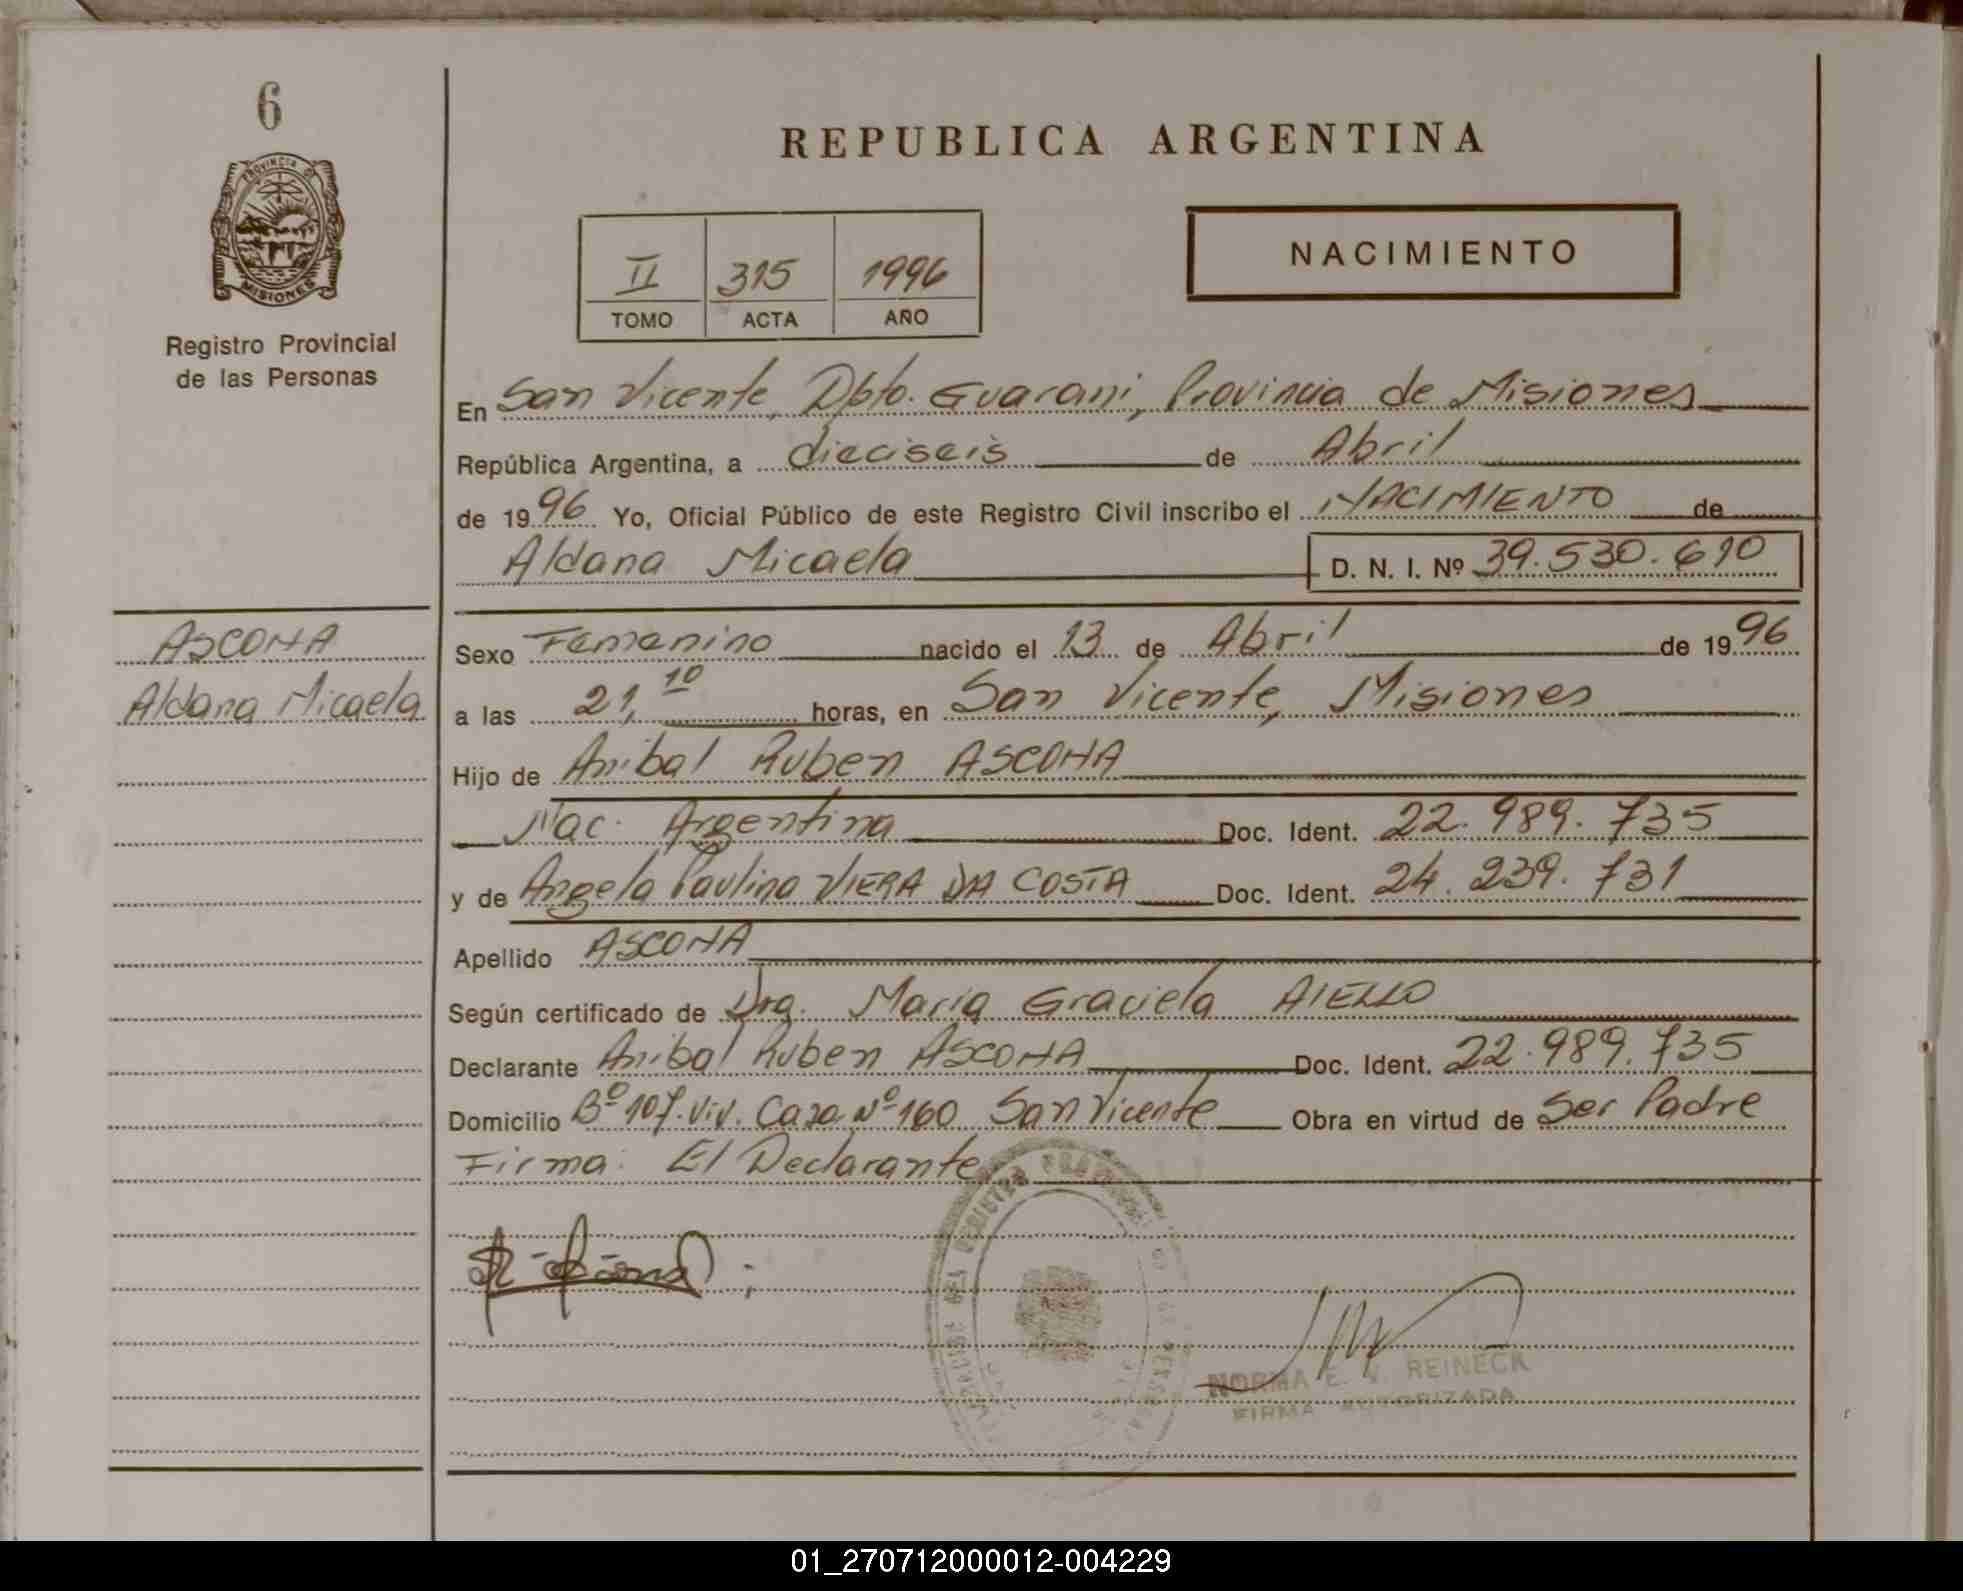 6
PROVINCIA DE
MISIONES
Registro Provincial
de las Personas
REPUBLICA ARGENTINA
II 315 1996
TOMO ACTA AÑO
NACIMIENTO
En San Vicente, Dpto. Guarani, Provincia de Misiones
República Argentina, a dieciseis de Abril
de 1996 Yo, Oficial Público de este Registro Civil inscribo el NACIMIENTO de
Aldana Micaela D. N. I. Nº 39.530.610
ASCONA
Aldana Micaela
Sexo Femenino nacido el 13 de Abril de 1996
a las 21,10 horas, en San Vicente, Misiones
Hijo de Anibal Ruben ASCONA
Nac. Argentina Doc. Ident. 22.989.735
y de Angela Paulina VIERA DA COSTA Doc. Ident. 24.239.731
Apellido ASCONA
Según certificado de Dra. Maria Graciela AIELLO
Declarante Anibal Ruben ASCONA Doc. Ident. 22.989.735
Domicilio Bº 107.Viv. Casa Nº 160 San Vicente Obra en virtud de Ser Padre
Firma: El Declarante
NORMA E. V. REINECK
FIRMA AUTORIZADA
01_270712000012-004229